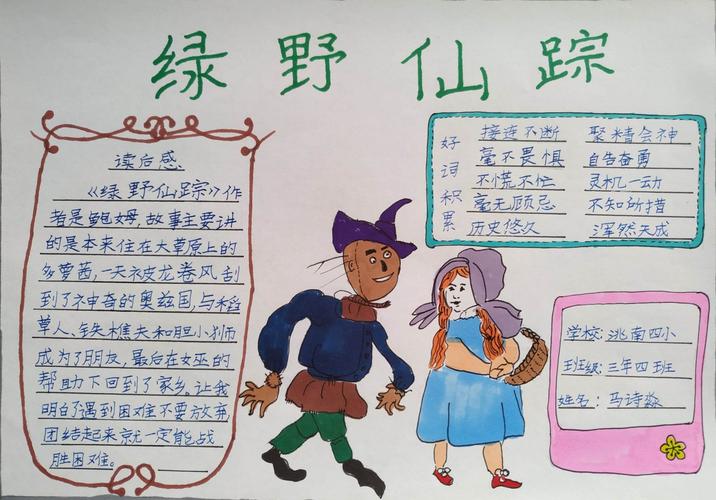 绿野仙踪
读后感
《绿野仙踪》作
者是鲍姆,故事主要讲
的是本来住在大草原上的
多萝茜,一天被龙卷风刮
到了神奇的奥兹国,与稻
草人、铁樵夫和胆小狮
成为了朋友,最后在女巫的
帮助下回到了家乡。让我
明白了遇到困难不要放弃,
团结起来就一定能战
胜困难。
好词积累
接连不断 聚精会神
毫不畏惧 自告奋勇
不慌不忙 灵机一动
毫无顾忌 不知所措
历史悠久 浑然天成
学校:洮南四小
班级:三年四班
姓名:马诗淼